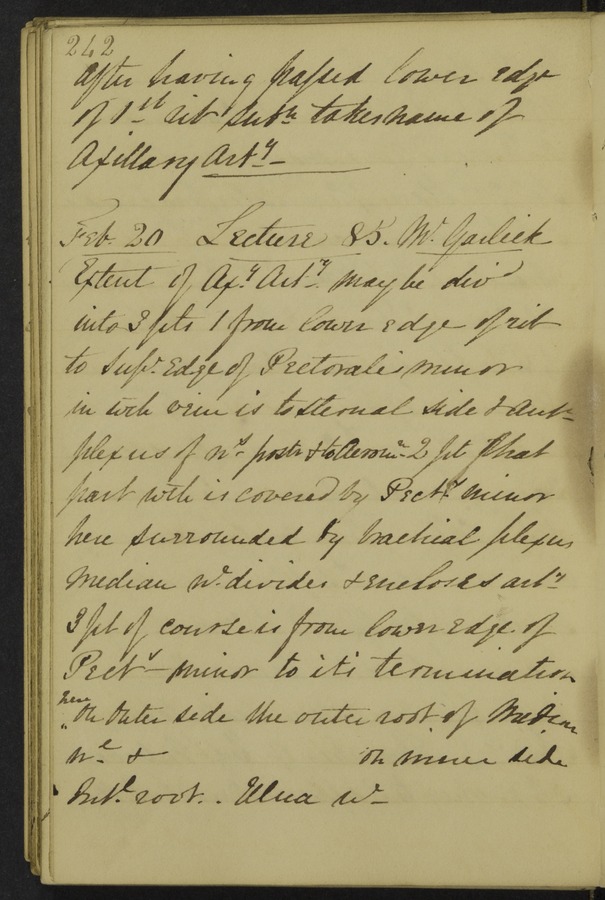 242
After having passed lower edge
of 1st rib Subn takes name of
Axillary Arty
Feb. 20 Lecture 85. Mr. Garlick
Extent of Axy Arty may be divd
into 3 pts 1 from lower edge of rib
to supr. edge of Pectoralis minor
in wch vein is to sternal side & antr
plexus of ns postr & to Acromn 2 pt that
part wch is covered by Pectl minor
here surrounded by brachial plexus
Median n. divides & encloses arty
3 pt of course is from lower edge of
Pectl minor to its termination
here
" On Outer side the outer root of Median
ne & on inner side
Intl root. Ulna n